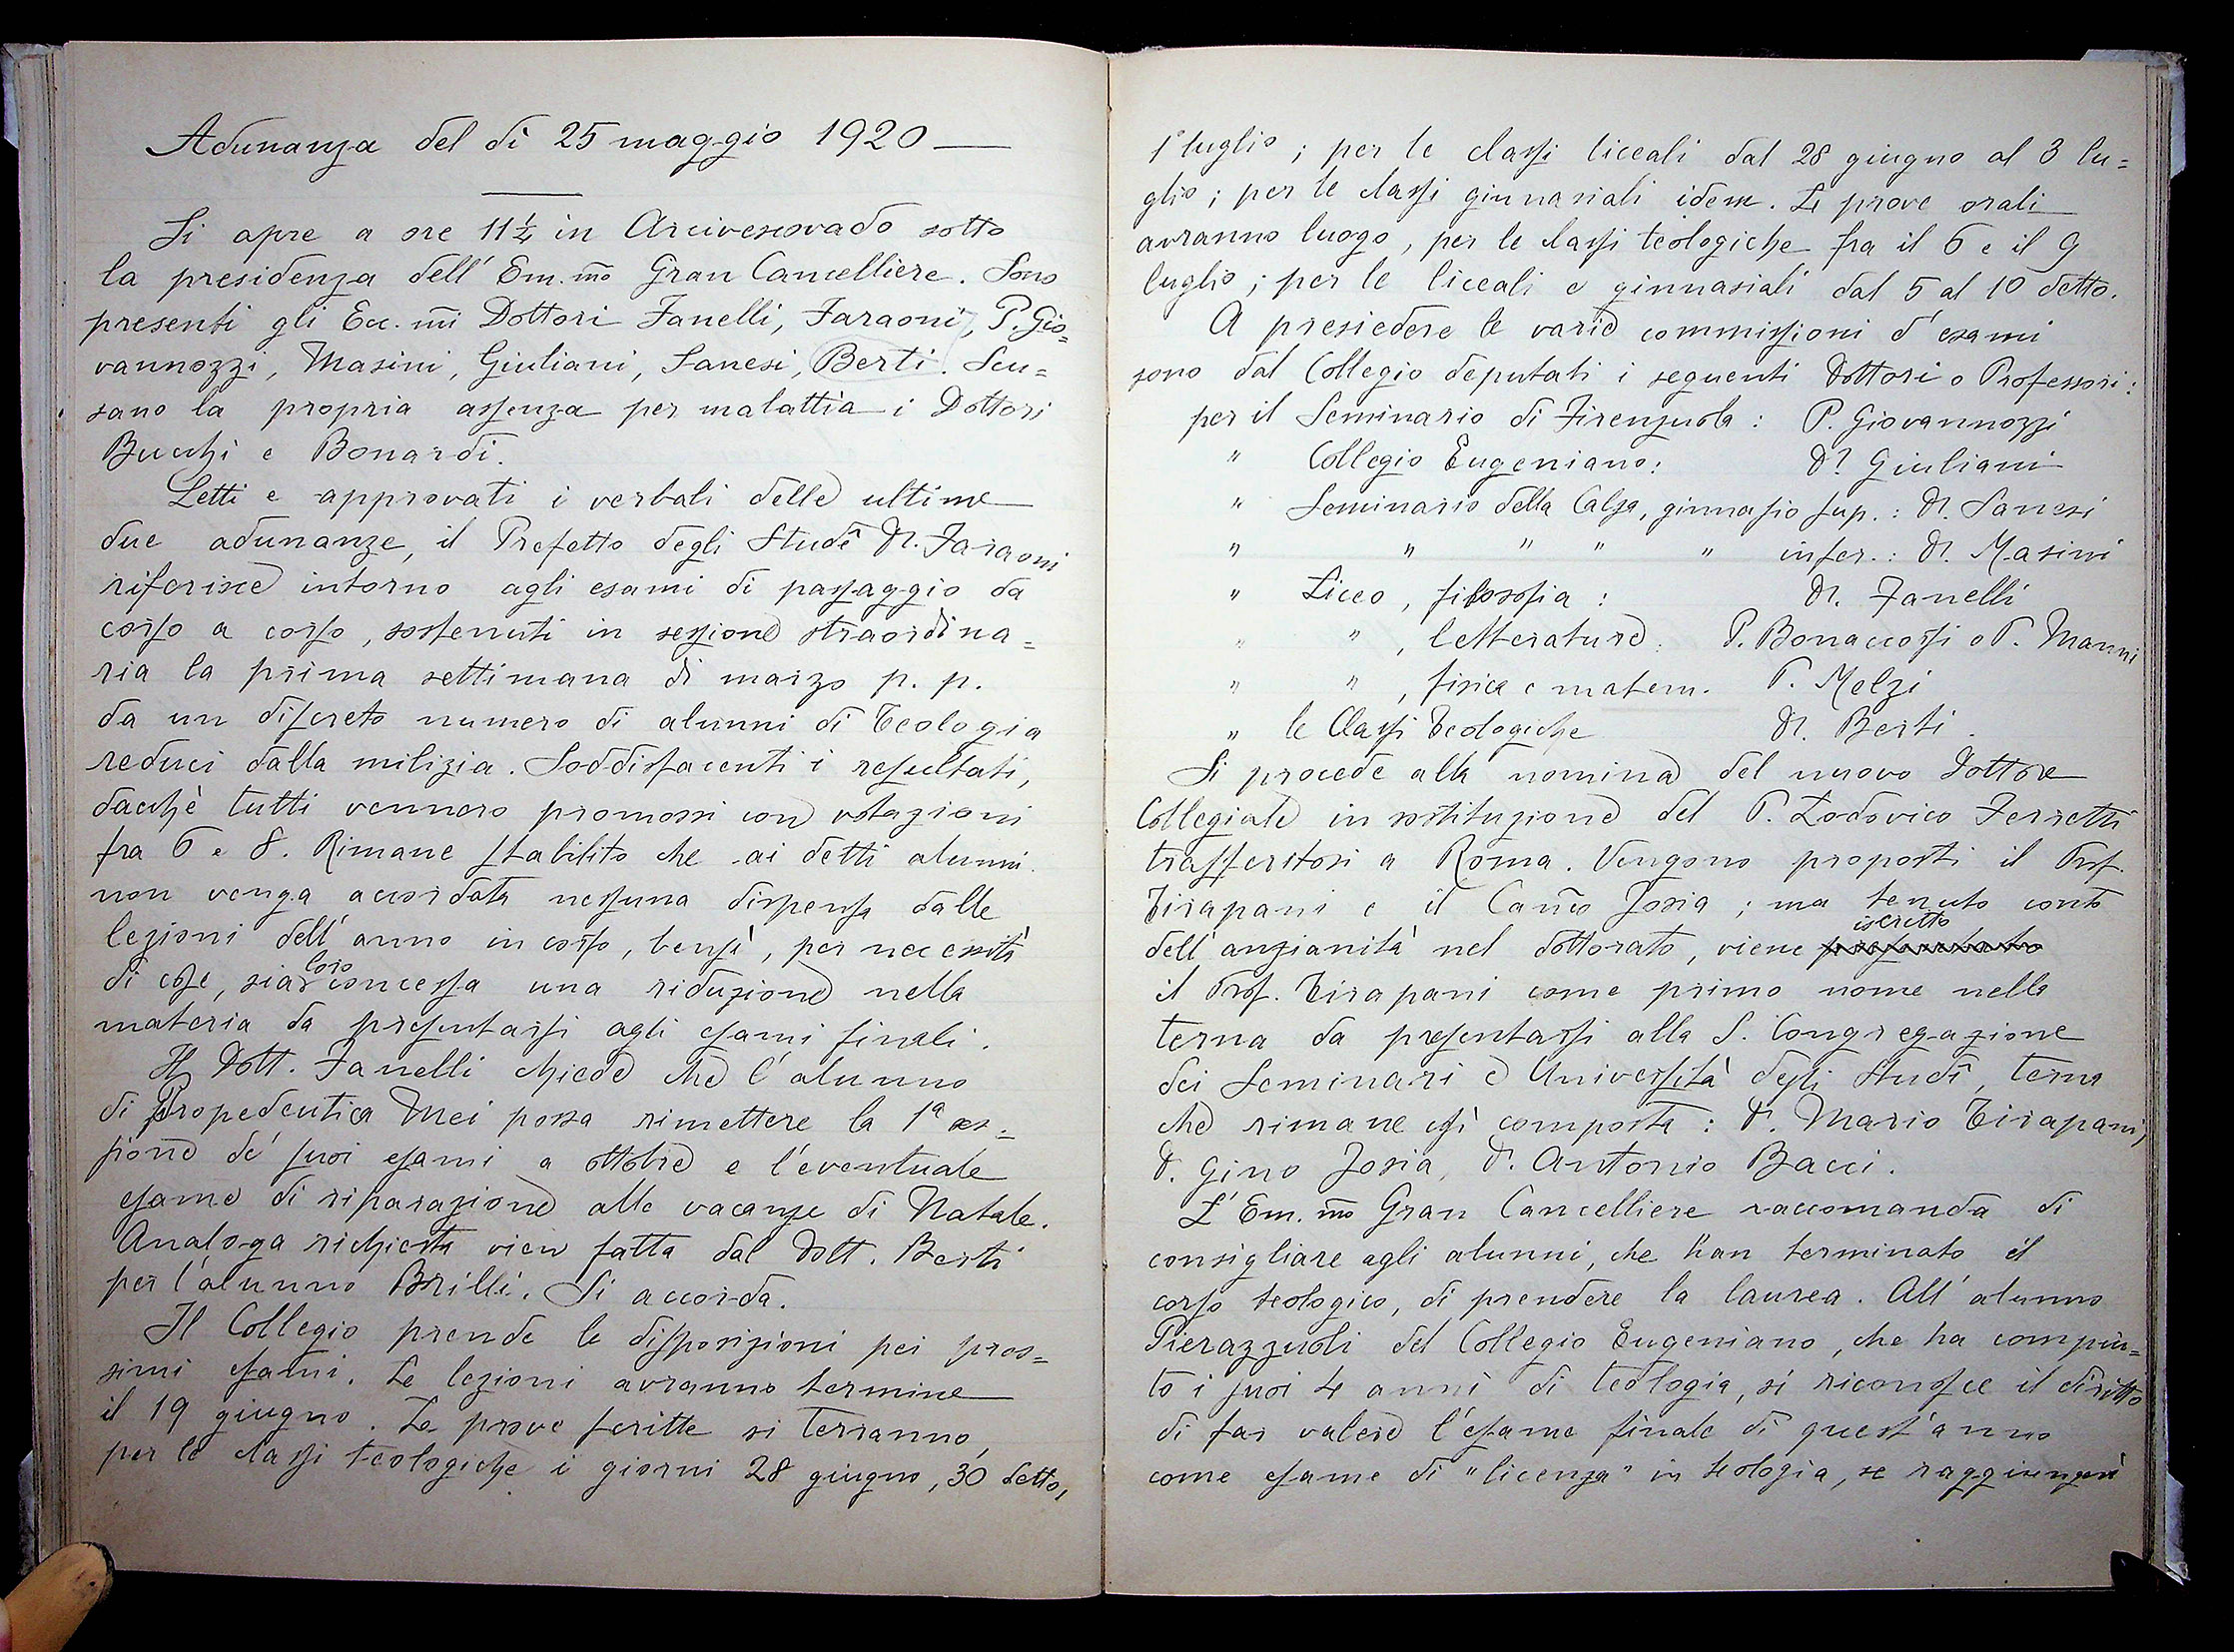 Adunanza del dì 25 maggio 1920 —
Si apre a ore 11¼ in Arcivescovado sotto
la presidenza dell'Em.mo Gran Cancelliere. Sono
presenti gli Ecc.mi Dottori Fanelli, Faraoni, P. Gio=
vannozzi, Masini, Giuliani, Sanesi, Berti. Scu=
sano la propria assenza per malattia i Dottori
Bucchi e Bonardi.
Letti e approvati i verbali delle ultime
due adunanze, il Prefetto degli Studî Dr. Faraoni
riferisce intorno agli esami di passaggio da
corso a corso, sostenuti in sessione straordina=
ria la prima settimana di marzo p. p.
da un discreto numero di alunni di Teologia
reduci dalla milizia. Soddisfacenti i resultati,
dacchè tutti vennero promossi con votazioni
fra 6 e 8. Rimane stabilito che ai detti alunni
non venga accordata nessuna dispensa dalle
lezioni dell'anno in corso, bensì, per necessità
di cose, sia loro concessa una riduzione nella
materia da presentarsi agli esami finali.
Il Dott. Fanelli chiede che l'alunno
di Propedeutica Mei possa rimettere la 1ª ses=
sione de' suoi esami a ottobre e l'eventuale
esame di riparazione alle vacanze di Natale.
Analoga richiesta vien fatta dal Dott. Berti
per l'alunno Brilli. Si accorda.
Il Collegio prende le disposizioni pei pros=
simi esami. Le lezioni avranno termine
il 19 giugno. Le prove scritte si terranno,
per le classi teologiche i giorni 28 giugno, 30 detto,
1° luglio; per le classi liceali dal 28 giugno al 3 lu=
glio; per le classi ginnasiali idem. Le prove orali
avranno luogo, per le classi teologiche fra il 6 e il 9
luglio; per le liceali e ginnasiali dal 5 al 10 detto.
A presiedere le varie commissioni d'esami
sono dal Collegio deputati i seguenti Dottori o Professori:
per il Seminario di Firenzuola: P. Giovannozzi
" Collegio Eugeniano: Dr. Giuliani
" Seminario della Calza, ginnasio sup.: Dr. Sanesi
" " " " " infer.: Dr. Masini
" Liceo, filosofia: Dr. Fanelli
" " , letterature: P. Bonaccorsi o P. Manni
" " , fisica e matem. P. Melzi
" le Classi Teologiche Dr. Berti.
Si procede alla nomina del nuovo Dottore
Collegiale in sostituzione del P. Lodovico Ferretti
trasferitosi a Roma. Vengono proposti il Prof.
Tirapani e il Can.co Josia; ma tenuto conto
dell'anzianità nel dottorato, viene iscritto
il Prof. Tirapani come primo nome nella
terna da presentarsi alla S. Congregazione
dei Seminari e Università degli Studî, terna
che rimane così composta: D. Mario Tirapani,
D. Gino Josia, D. Antonio Bacci.
L'Em.mo Gran Cancelliere raccomanda di
consigliare agli alunni, che han terminato il
corso teologico, di prendere la laurea. All'alunno
Pierazzuoli del Collegio Eugeniano, che ha compiu=
to i suoi 4 anni di teologia, si riconosce il diritto
di far valere l'esame finale di quest'anno
come esame di "licenza" in teologia, se raggiungerà